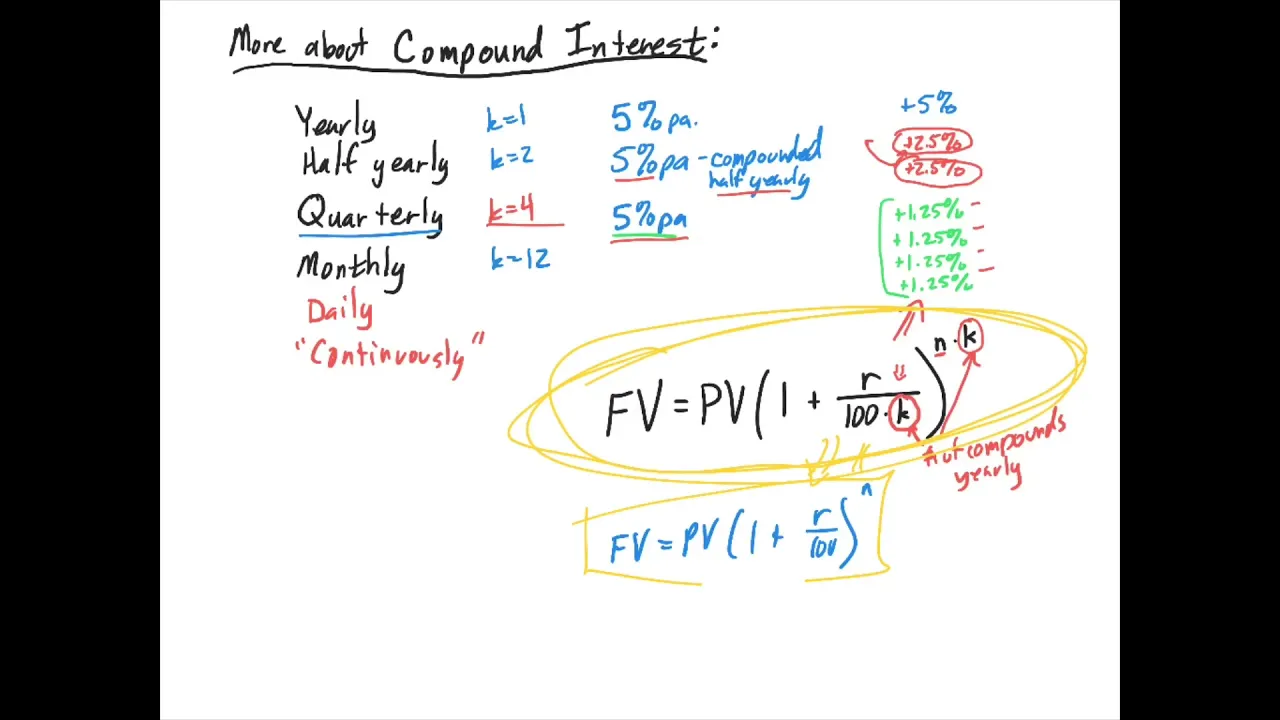 More about Compound Interest:
Yearly k=1 5% pa. +5%
Half yearly k=2 5% pa - compounded half yearly +2.5%
+2.5%
Quarterly k=4 5% pa +1.25%
+1.25%
+1.25%
+1.25%
Monthly k=12
Daily
"Continuously"
FV = PV(1 + r/(100·k))^(n·k)
# of compounds
yearly
FV = PV(1 + r/100)^n